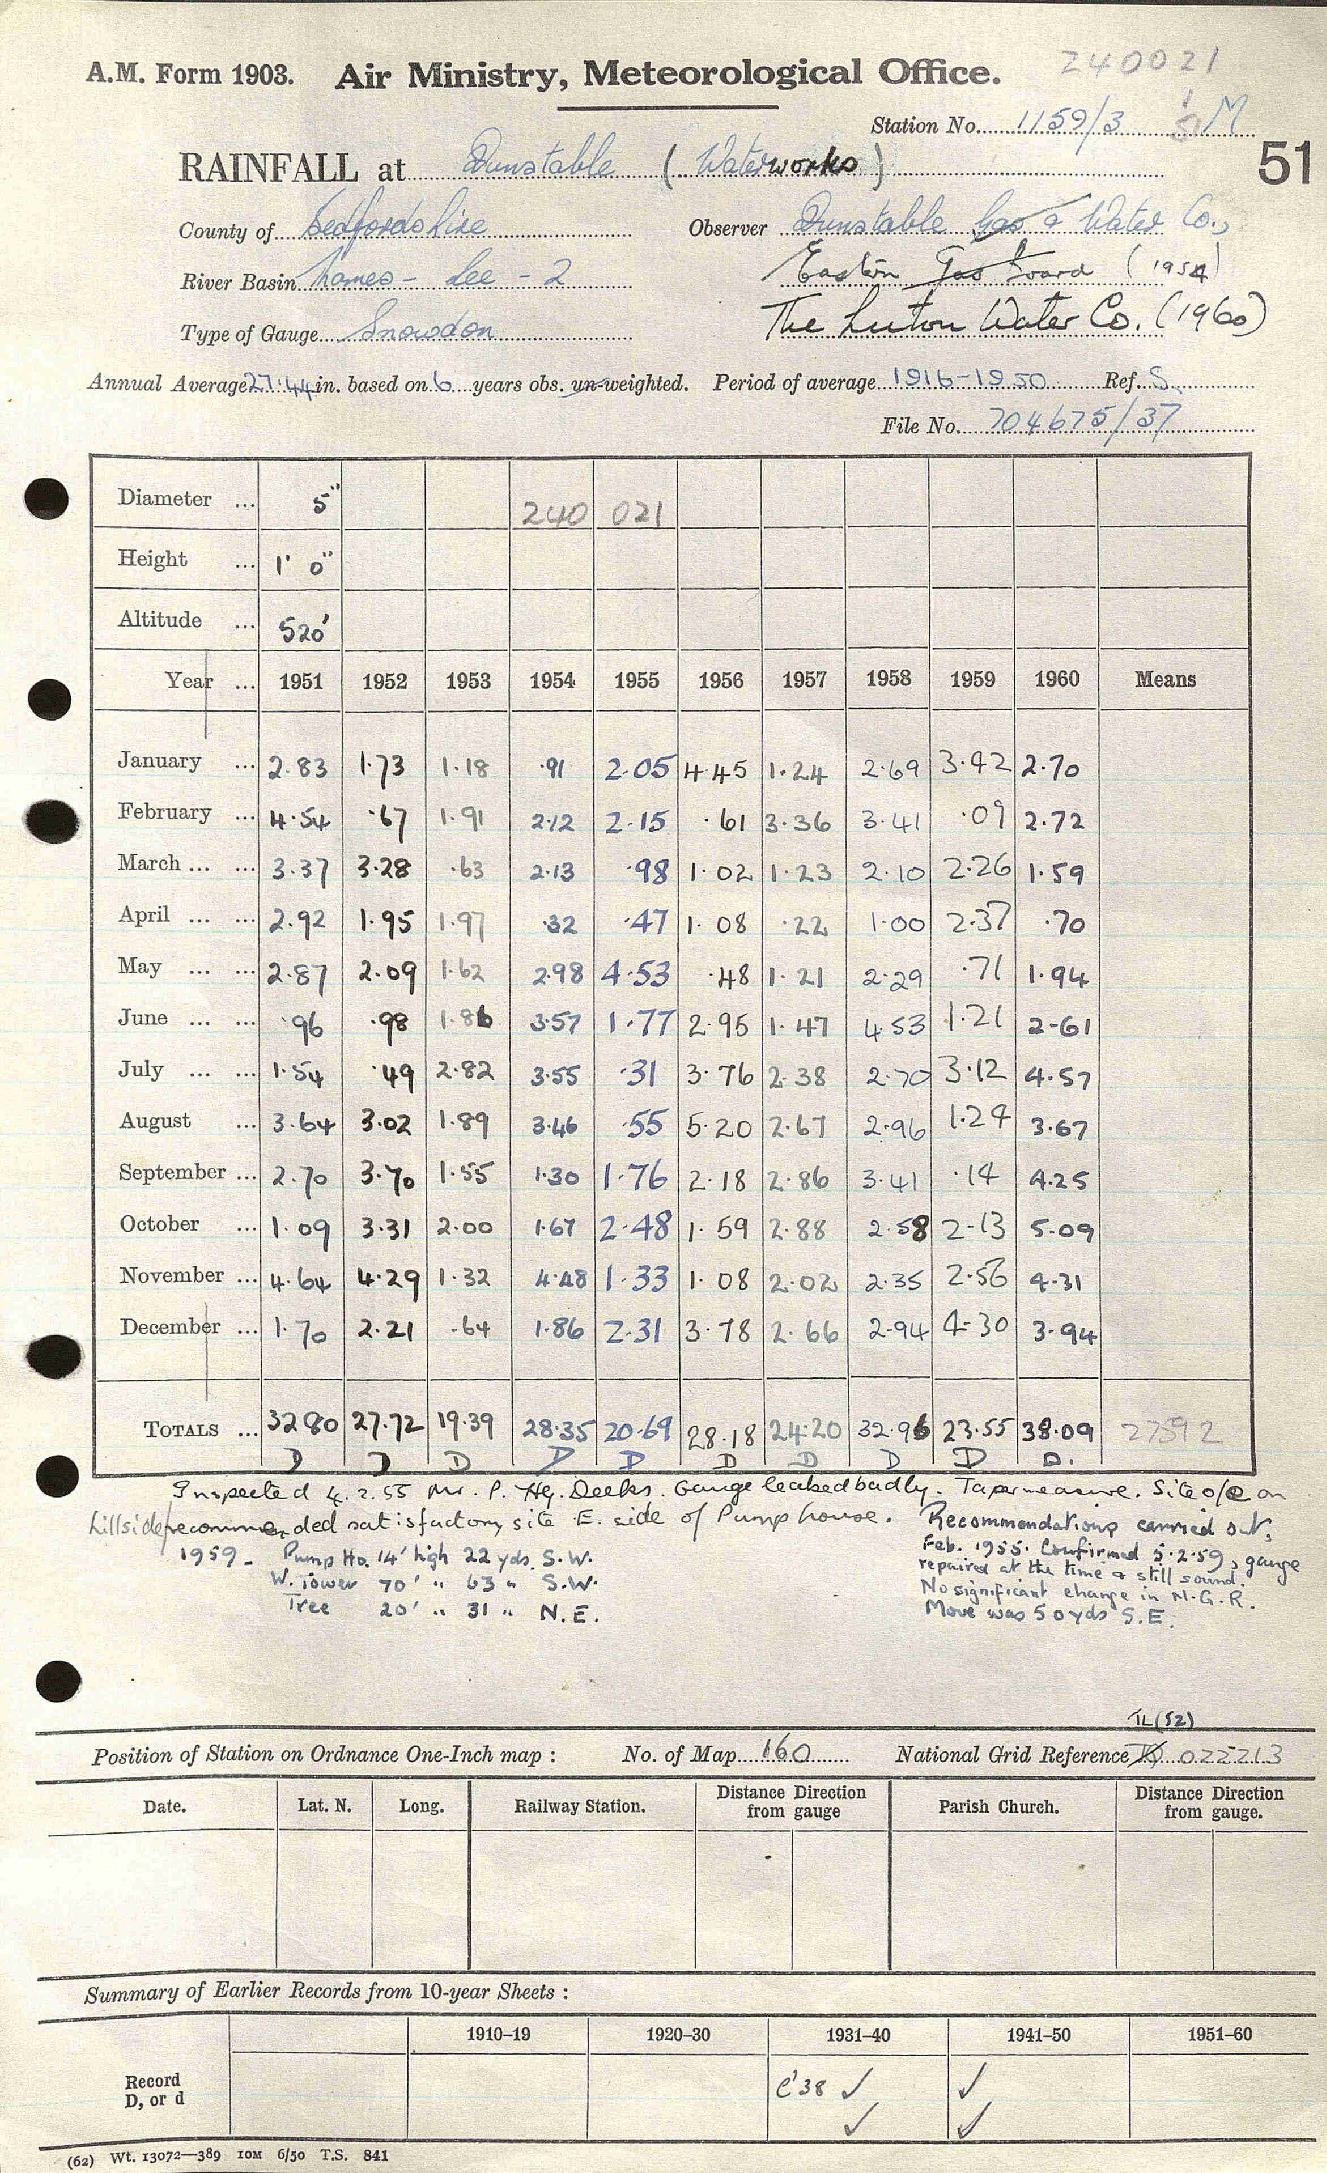 240021
A.M. Form 1903. Air Ministry, Meteorological Office.
Station No. 1159/3 M
51
RAINFALL at Dunstable (Waterworks)
County of Bedfordshire Observer Dunstable Gas & Water Co.,
River Basin Thames - Lee - 2 Eastern Gas Board (1954)
Type of Gauge Snowdon The Luton Water Co. (1960)
Annual Average 27.44 in. based on 6 years obs. un-weighted. Period of average 1916-1950 Ref. S.
File No. 704675/37
Diameter ... 5" 240 021
Height ... 1' 0"
Altitude ... 520'
Year ... 1951 1952 1953 1954 1955 1956 1957 1958 1959 1960 Means
January ... 2.83 1.73 1.18 .91 2.05 4.45 1.24 2.69 3.42 2.70
February ... 4.54 .67 1.91 2.12 2.15 .61 3.36 3.41 .09 2.72
March ... ... 3.37 3.28 .63 2.13 .98 1.02 1.23 2.10 2.26 1.59
April ... ... 2.92 1.95 1.97 .32 .47 1.08 .22 1.00 2.37 .70
May ... ... 2.87 2.09 1.62 2.98 4.53 .48 1.21 2.29 .71 1.94
June ... ... .96 .98 1.86 3.57 1.77 2.95 1.47 4.53 1.21 2-61
July ... ... 1.54 .49 2.82 3.55 .31 3.76 2.38 2.70 3.12 4.57
August ... 3.64 3.02 1.89 3.46 .55 5.20 2.67 2.96 1.24 3.67
September ... 2.70 3.70 1.55 1.30 1.76 2.18 2.86 3.41 .14 4.25
October ... 1.09 3.31 2.00 1.67 2.48 1.59 2.88 2.58 2-13 5.09
November ... 4.64 4.29 1.32 4.48 1.33 1.08 2.02 2.35 2.56 4.31
December ... 1.70 2.21 .64 1.86 2.31 3.78 2.66 2.94 4.30 3.94
TOTALS ... 32 80 27.72 19.39 28.35 20.69 28.18 24.20 32.96 23.55 38.09 27592
D D D D D D D D D D.
Inspected 4.2.55 Mr. P. Hy. Deeks. Gauge leaked badly. Taper measure. Site o/e on
hillside recommended satisfactory site E. side of Pump house. Recommendations carried out,
1959 - Pump Ho. 14' high 22 yds. S.W. Feb. 1955. Confirmed 5.2.59, gauge
repaired at the time & still sound.
W. Tower 70' " 63 " S.W.
No significant change in N.G.R.
Tree 20' " 31 " N.E. Move was 50 yds S.E.
TL (52)
Position of Station on Ordnance One-Inch map : No. of Map 160 National Grid Reference 022213
Date. Lat. N. Long. Railway Station. Distance Direction from gauge Parish Church. Distance Direction from gauge.
Summary of Earlier Records from 10-year Sheets :
1910–19 1920–30 1931–40 1941–50 1951–60
Record C'38 ✓ ✓
D, or d ✓ ✓
(62) Wt. 13072—389 10M 6/50 T.S. 841